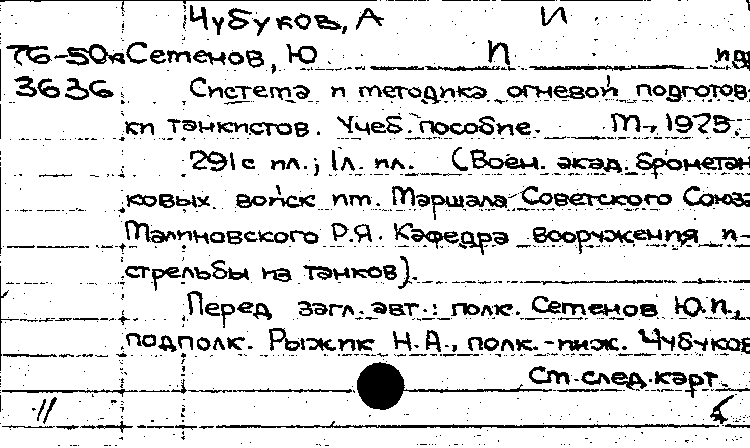 Чубуков, А И
76-50к Сетенов, Ю П пд
3636 Система и методика огневой подготов-
ки танкистов. Учеб. пособие. М., 1975.
291с ил.; 1л. ил. (Воен. акад. бронетан-
ковых войск им. Маршала Советского Союза
Малиновского Р.Я. Кафедра вооружения и
стрельбы из танков).
Перед загл. авт.: полк. Сетенов Ю.П.,
подполк. Рыжик Н.А., полк.-инж. Чубуков
См. след. карт.
11